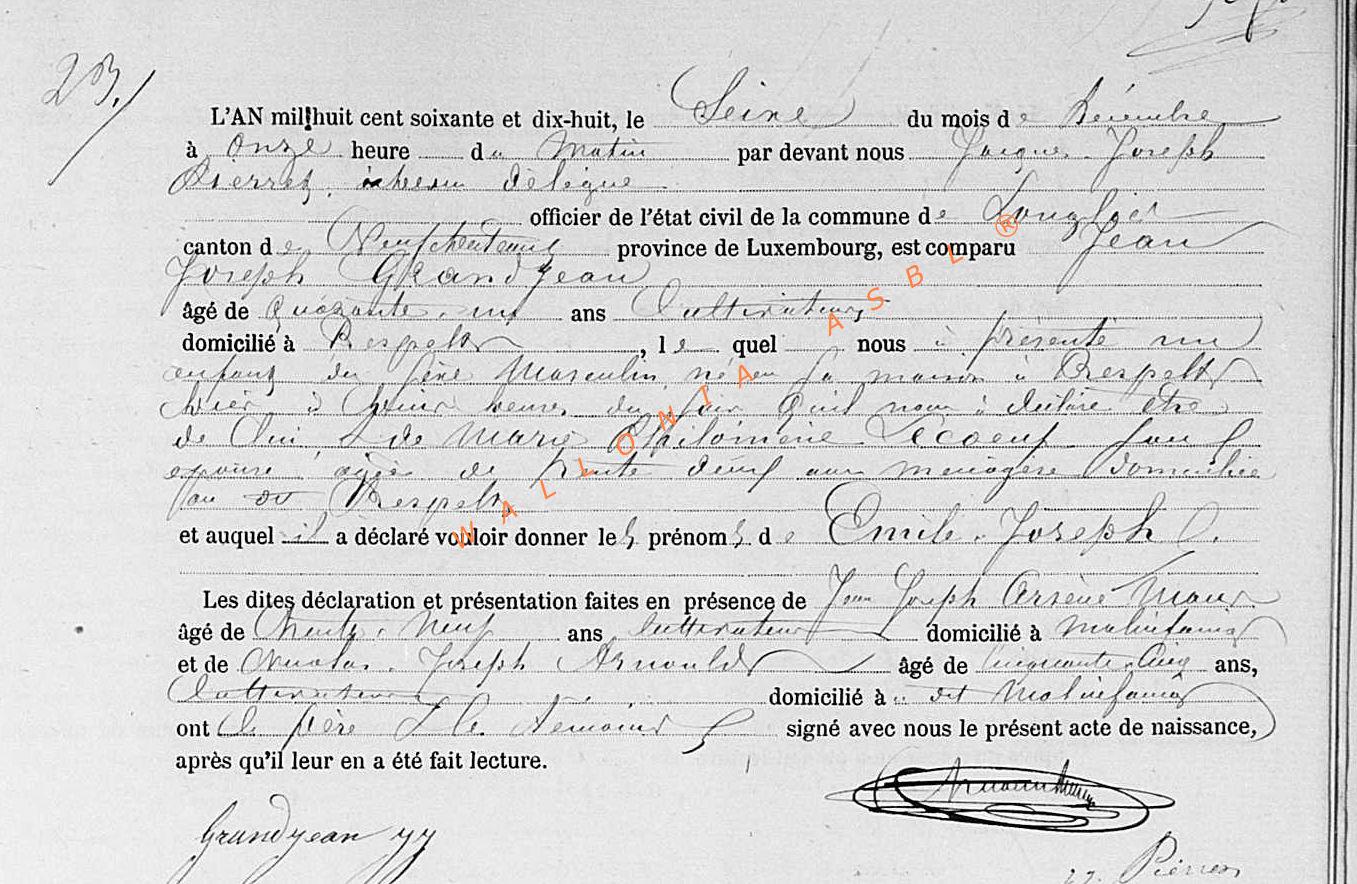 23.
L'AN mil huit cent soixante et dix-huit, le Seize du mois de Décembre
à onze heure du Matin par devant nous Jacques Joseph
Pierret, échevin délégué
officier de l'état civil de la commune de Longlier
canton de Neufchateau province de Luxembourg, est comparu Jean
Joseph Grandjean
âgé de quarante un ans Cultivateur
domicilié à Respelt, le quel nous a présenté un
enfant du sexe Masculin né en sa maison à Respelt
hier à heures du soir qu'il nous à déclaré être
de lui & de Marie Philomène Lecoeuf son
épouse agée de trente deux ans menagère domiciliée
au dit Respelt
et auquel il a déclaré vouloir donner les prénoms de Emile Joseph
Les dites déclaration et présentation faites en présence de Jean Joseph Arsène
âgé de Trente Neuf ans Cultivateur domicilié à Molinfaing
et de Nicolas Joseph Arnould âgé de Cinquante Cinq ans,
Cultivateur domicilié à dit Molinfaing
ont le père & les témoins signé avec nous le présent acte de naissance,
après qu'il leur en a été fait lecture.
Grandjean JJ
Pierret
WALLONIA ASBL ®